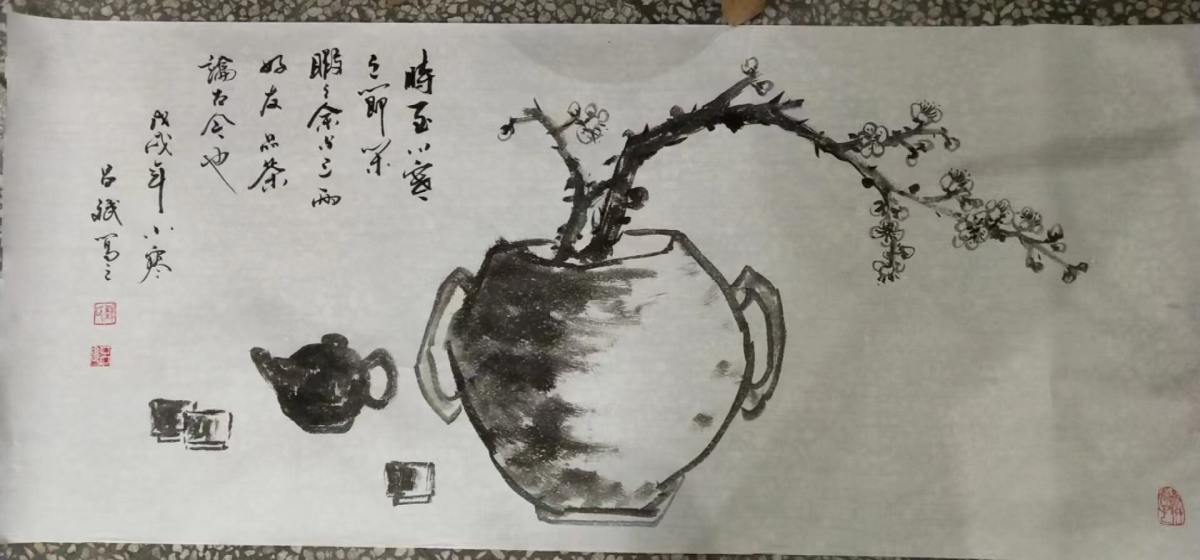 時至小寒
之節筆
暇之余与三兩
好友品茶
論古今也
戊戌年小寒
吕斌寫之